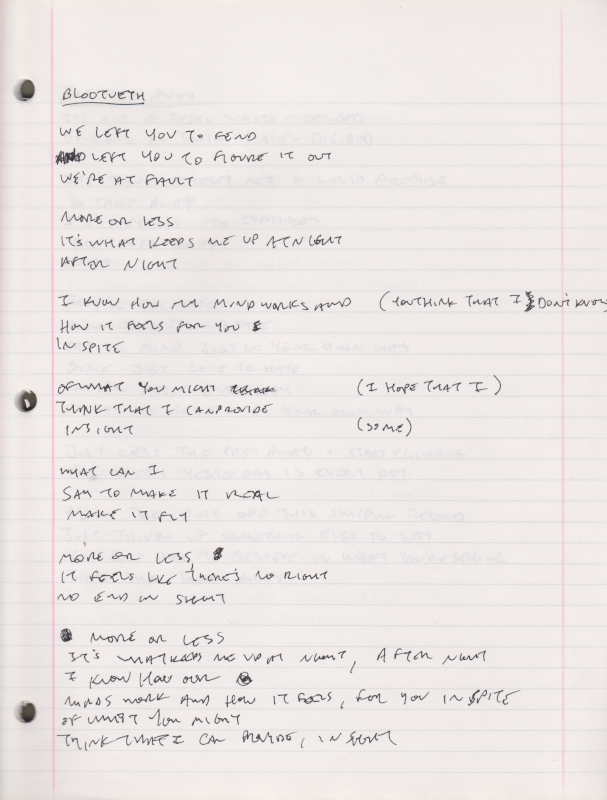 BLOOTUETH
WE LEFT YOU TO FEND
AND LEFT YOU TO FIGURE IT OUT
WE'RE AT FAULT
MORE OR LESS
IT'S WHAT KEEPS ME UP AT NIGHT
AFTER NIGHT
I KNOW HOW MY MIND WORKS AND (YOU THINK THAT I DON'T KNOW
HOW IT FEELS FOR YOU
IN SPITE
OF WHAT YOU MIGHT (I HOPE THAT I)
THINK THAT I CAN PROVIDE
INSIGHT (SOME)
WHAT CAN I
SAY TO MAKE IT REAL
MAKE IT FLY
MORE OR LESS,
IT FEELS LIKE THERE'S NO RIGHT
NO END IN SIGHT
MORE OR LESS
IT'S WHAT KEEPS ME UP AT NIGHT, AFTER NIGHT
I KNOW HOW OUR
MINDS WORK AND HOW IT FEELS, FOR YOU IN SPITE
OF WHAT YOU MIGHT
THINK THAT I CAN PROVIDE, INSIGHT